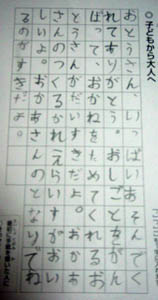 ○子どもから大人へ
おとうさん、いっぱいあそんでく
れてありがとう。しごとをがん
ばって、おかねをためてくれるお
とうさんがだいすきだよ。おかあ
さんのつくるかれえらいすがおい
しいよ。おかあさんのとなりでね
るのがすきだよ。